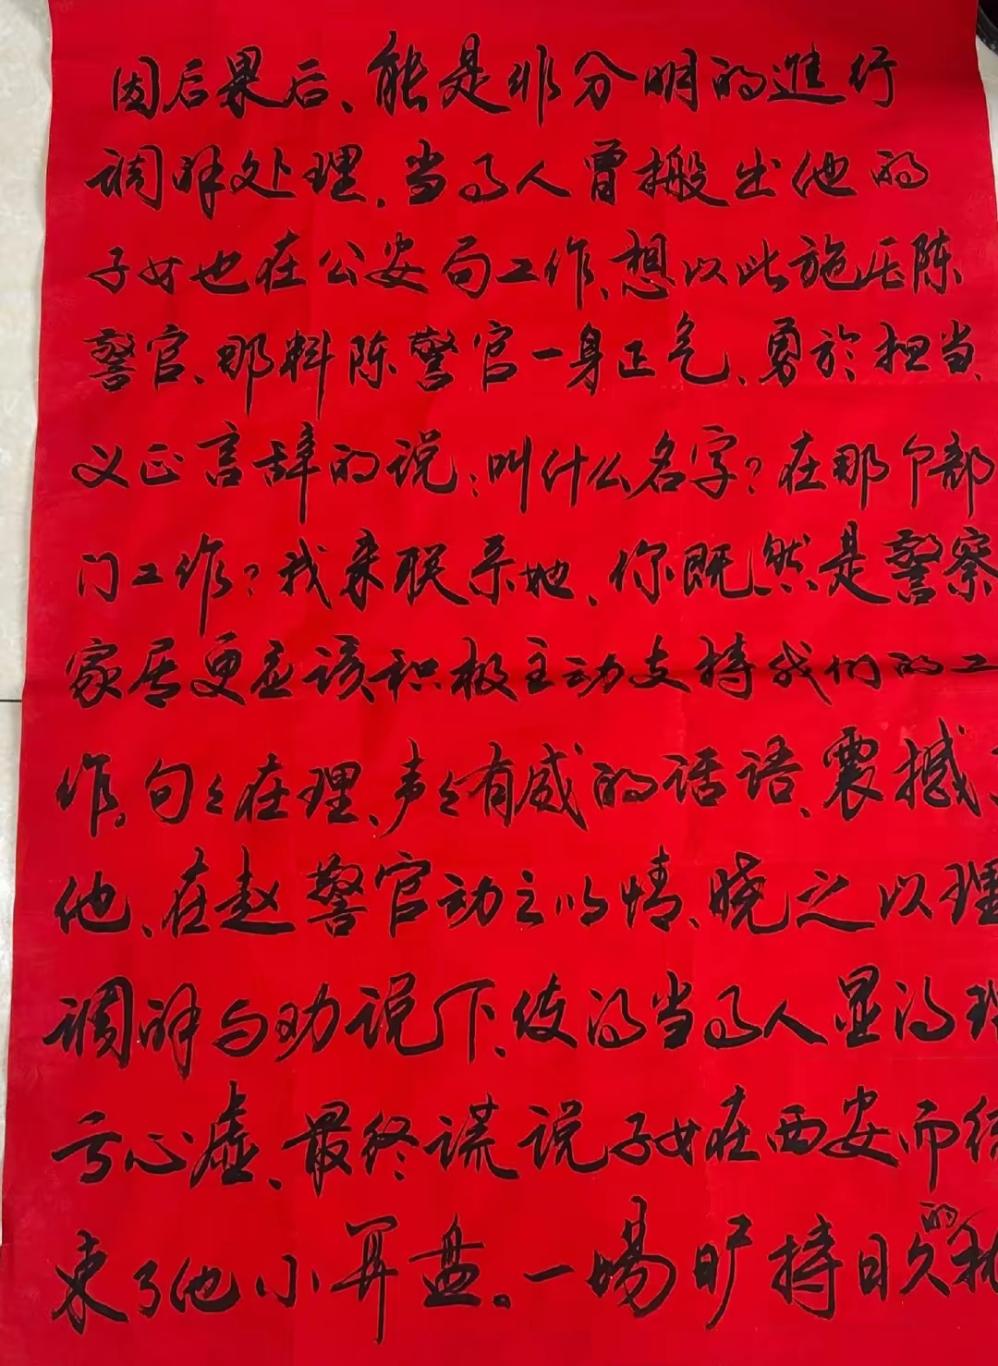 因后果后、能是非分明的進行
调解处理。当事人曾搬出他的
子女也在公安局工作、想以此施压陈
警官、那料陈警官一身正气、勇於担当、
义正言辞的说：叫什么名字？在那个部
门工作？我来联系她、你既然是警察
家居更应该积极主动支持我们的工
作。句々在理、声々有威的话语、震撼
他、在赵警官动之以情、晓之以理
调解与劝说下、使得当事人显得
亏心虚、最终谎说子女在西安而结
束了他小算盘。一场旷持日久的